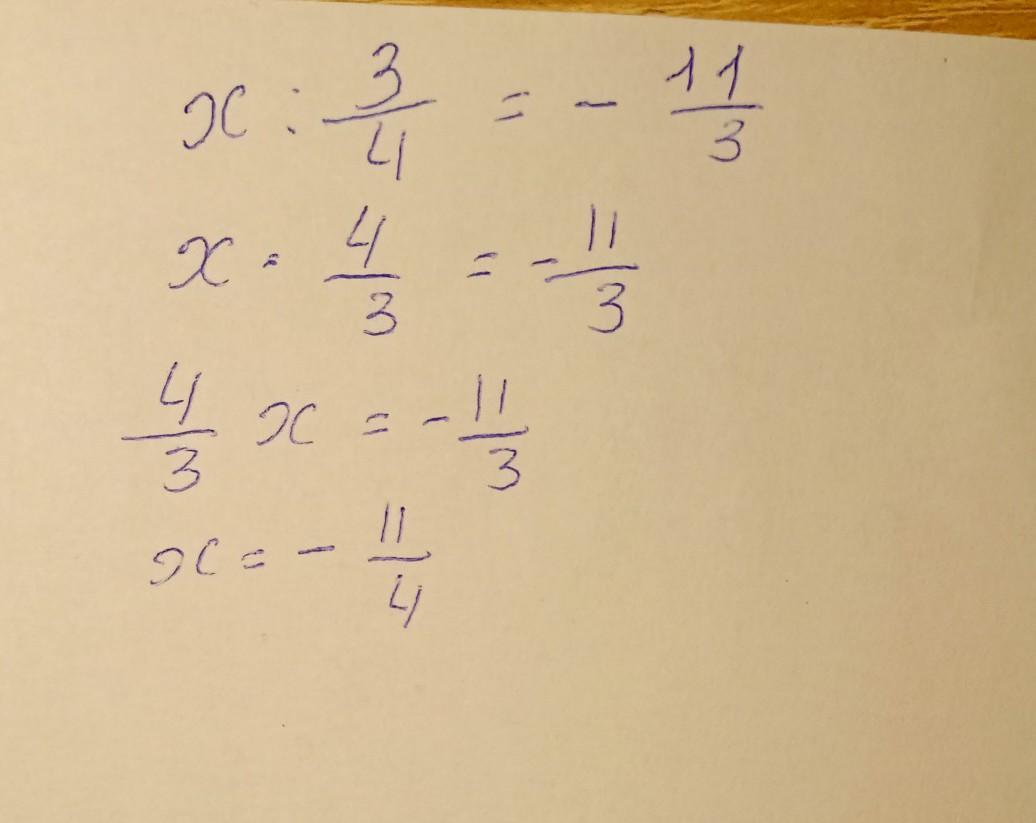 x : 3/4 = - 11/3
x · 4/3 = - 11/3
4/3 x = - 11/3
x = - 11/4